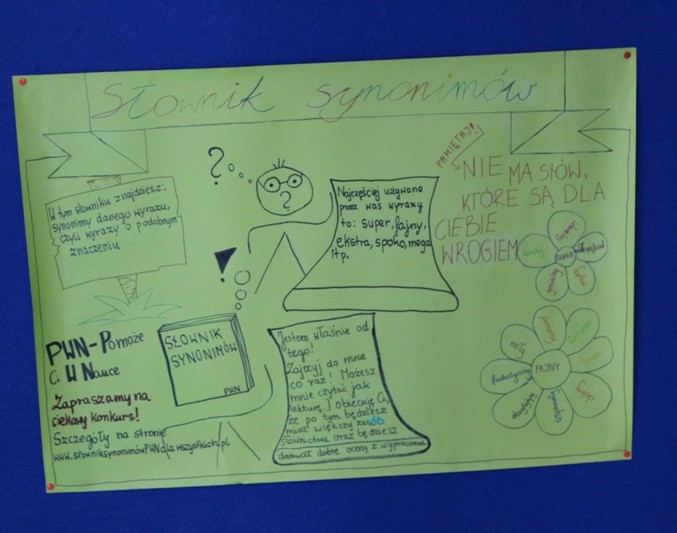 Słownik synonimów
W tym słowniku znajdziesz:
synonimy danego wyrazu,
czyli wyrazy o podobnym
znaczeniu
?
?
Najczęściej używane
przez was wyrazy
to: super, fajny,
ekstra, spoko, mega
itp.
PAMIĘTAJ!
NIE MA SŁÓW,
KTÓRE SĄ DLA
CIEBIE
WROGIEM
!
PWN-Pomoże
Ci W Nauce
Zapraszamy na
ciekawy konkurs!
Szczegóły na stronie
www.słowniksynonimówPWNdlawszystkich.pl
SŁOWNIK
SYNONIMÓW
PWN
Jestem właśnie od
tego!
Zajrzyj do mnie
co raz! Możesz
mnie czytać jak
lekturę, obiecuję Ci,
że po tym będziesz
miał większy zasób
słownictwa oraz będziesz
dostawał dobre oceny z wypracowań
miły
FAJNY